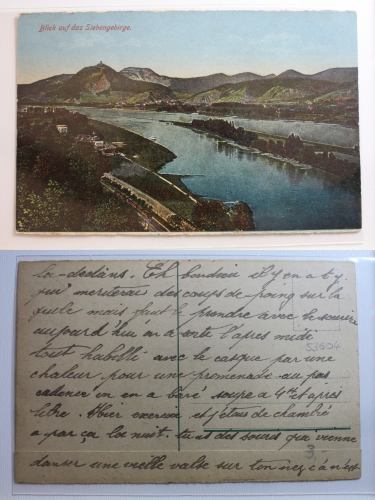 Blick auf das Siebengebirge.
la-dedans. Eh bondieu il y en a t'y
qui meriterai des coups de poing sur la
gueule mais faut le prendre avec le sourire
aujourd'hui on a sorti l'apres midi
tout habillé avec le casque par une
chaleur pour une promenade au pas
cadencer on en a bavé soupe a 4 H et apres
libre. Hier exercice et j'etais de chambré
a par ça la nuit. tu as des souris qui vienne
danser une vieille valse sur ton nez ç'a n'est
51604
3